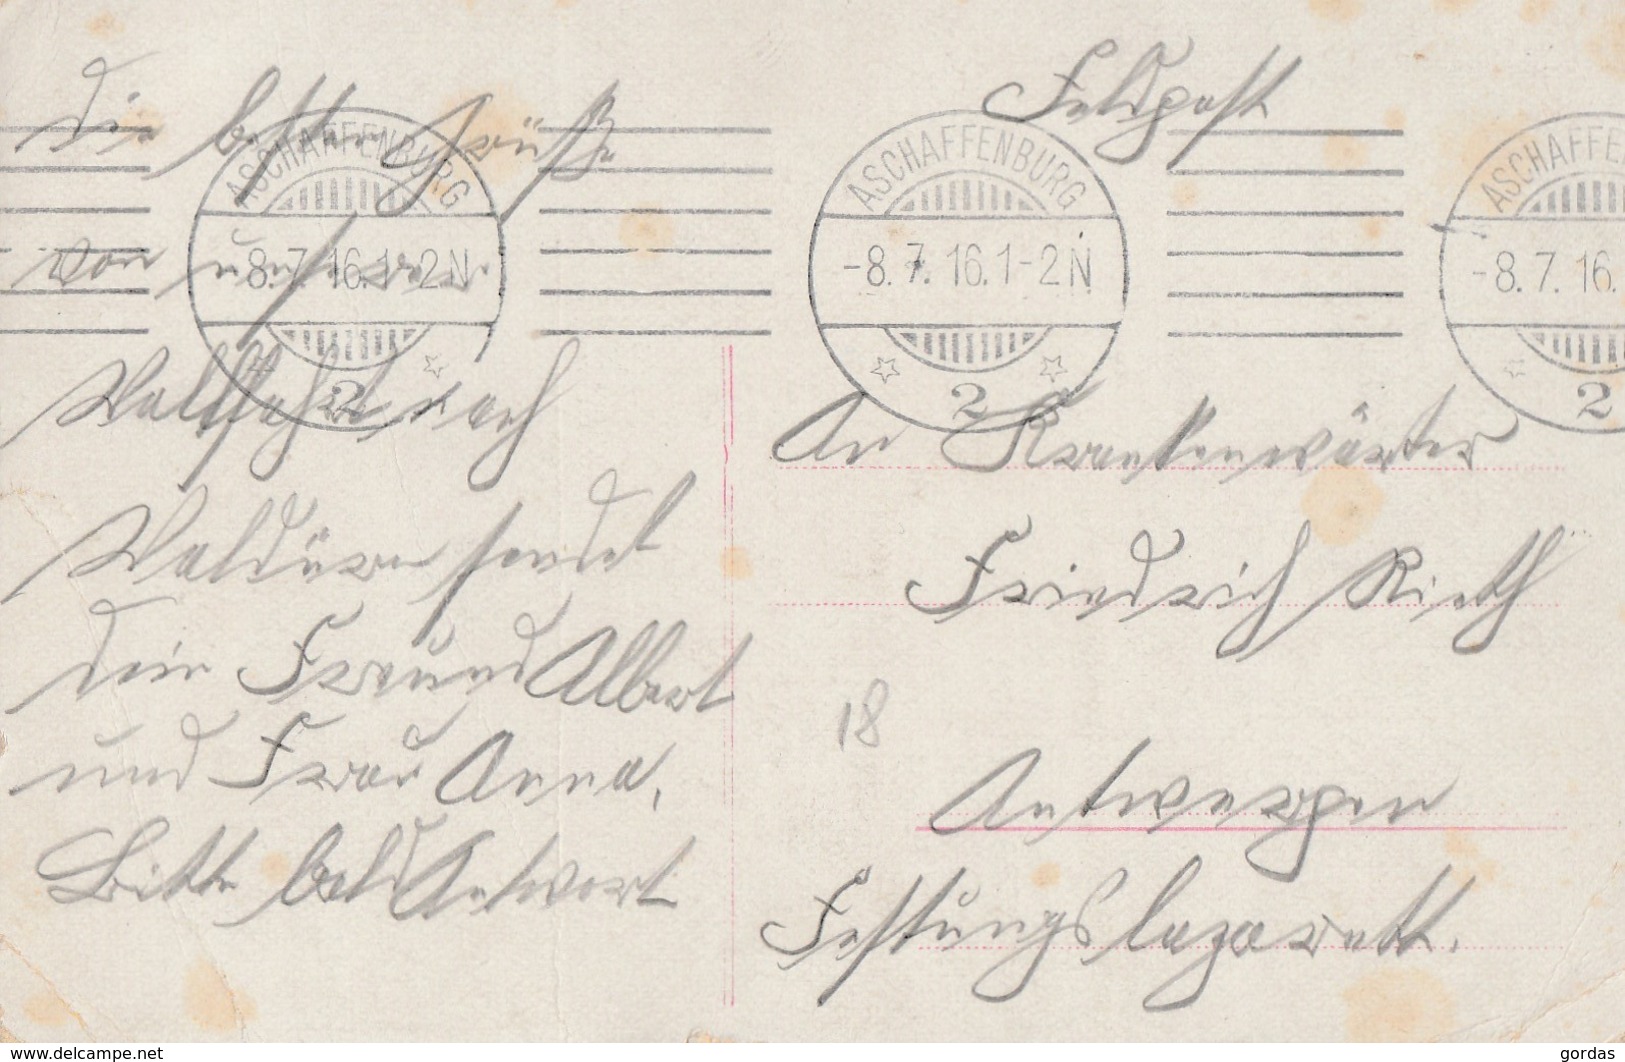 Die besten Grüße
von unserer
Wallfahrt nach
Waldürn sendet
dein Freund Albert
und Frau Anna.
Bitte bald Antwort
ASCHAFFENBURG
-8.7.16.1-2N
2
Feldpost
ASCHAFFENBURG
-8.7.16.1-2N
2
ASCHAFFE
-8.7.16.
2
An Krankenwärter
Friedrich Rieth
18
Antwerpen
Festungslazarett.
www.delcampe.net
gordas